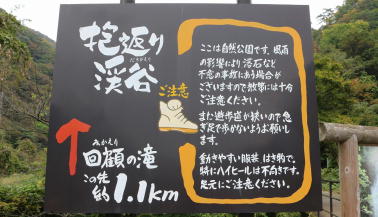 抱返り
だきかえり
渓谷
ご注意
みかえり
回顧の滝
この先
約1.1km
ここは自然公園です。風雨
の影響により落石など
不意の事故にあう場合が
ございますので散策には十分
ご注意ください。
また遊歩道が狭いので急
ぎ足で歩かないようお願いし
ます。
動きやすい服装 はき物で。
特にハイヒールは不向きです。
足元にご注意ください。